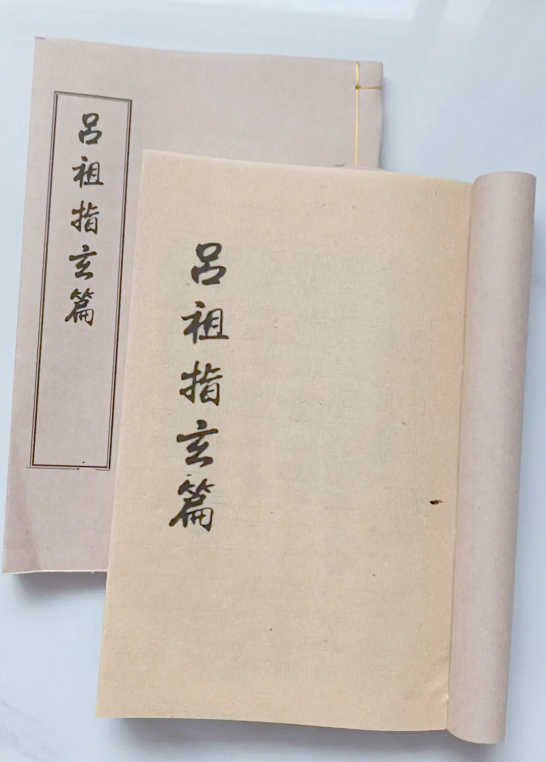 呂祖指玄篇
呂祖指玄篇